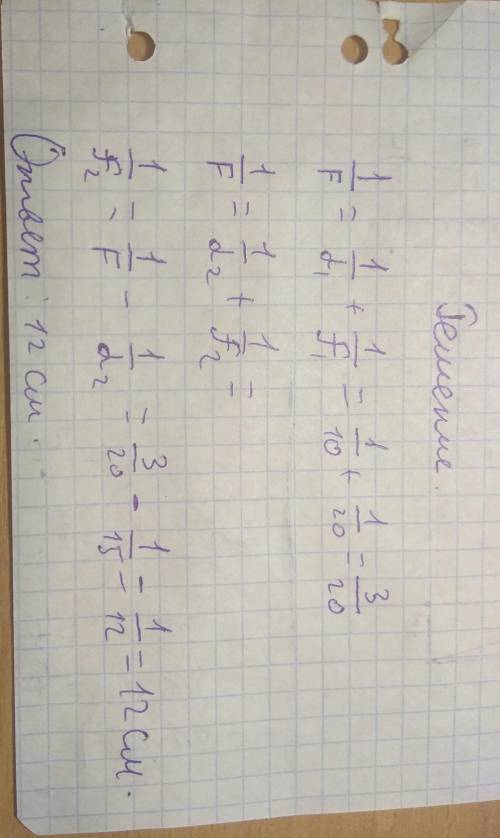 Решение.
1/F = 1/d₁ + 1/f₁ = 1/10 + 1/20 = 3/20
1/F = 1/d₂ + 1/f₂ =
1/f₂ = 1/F - 1/d₂ = 3/20 - 1/15 = 1/12 = 12 см.
Ответ: 12 см.